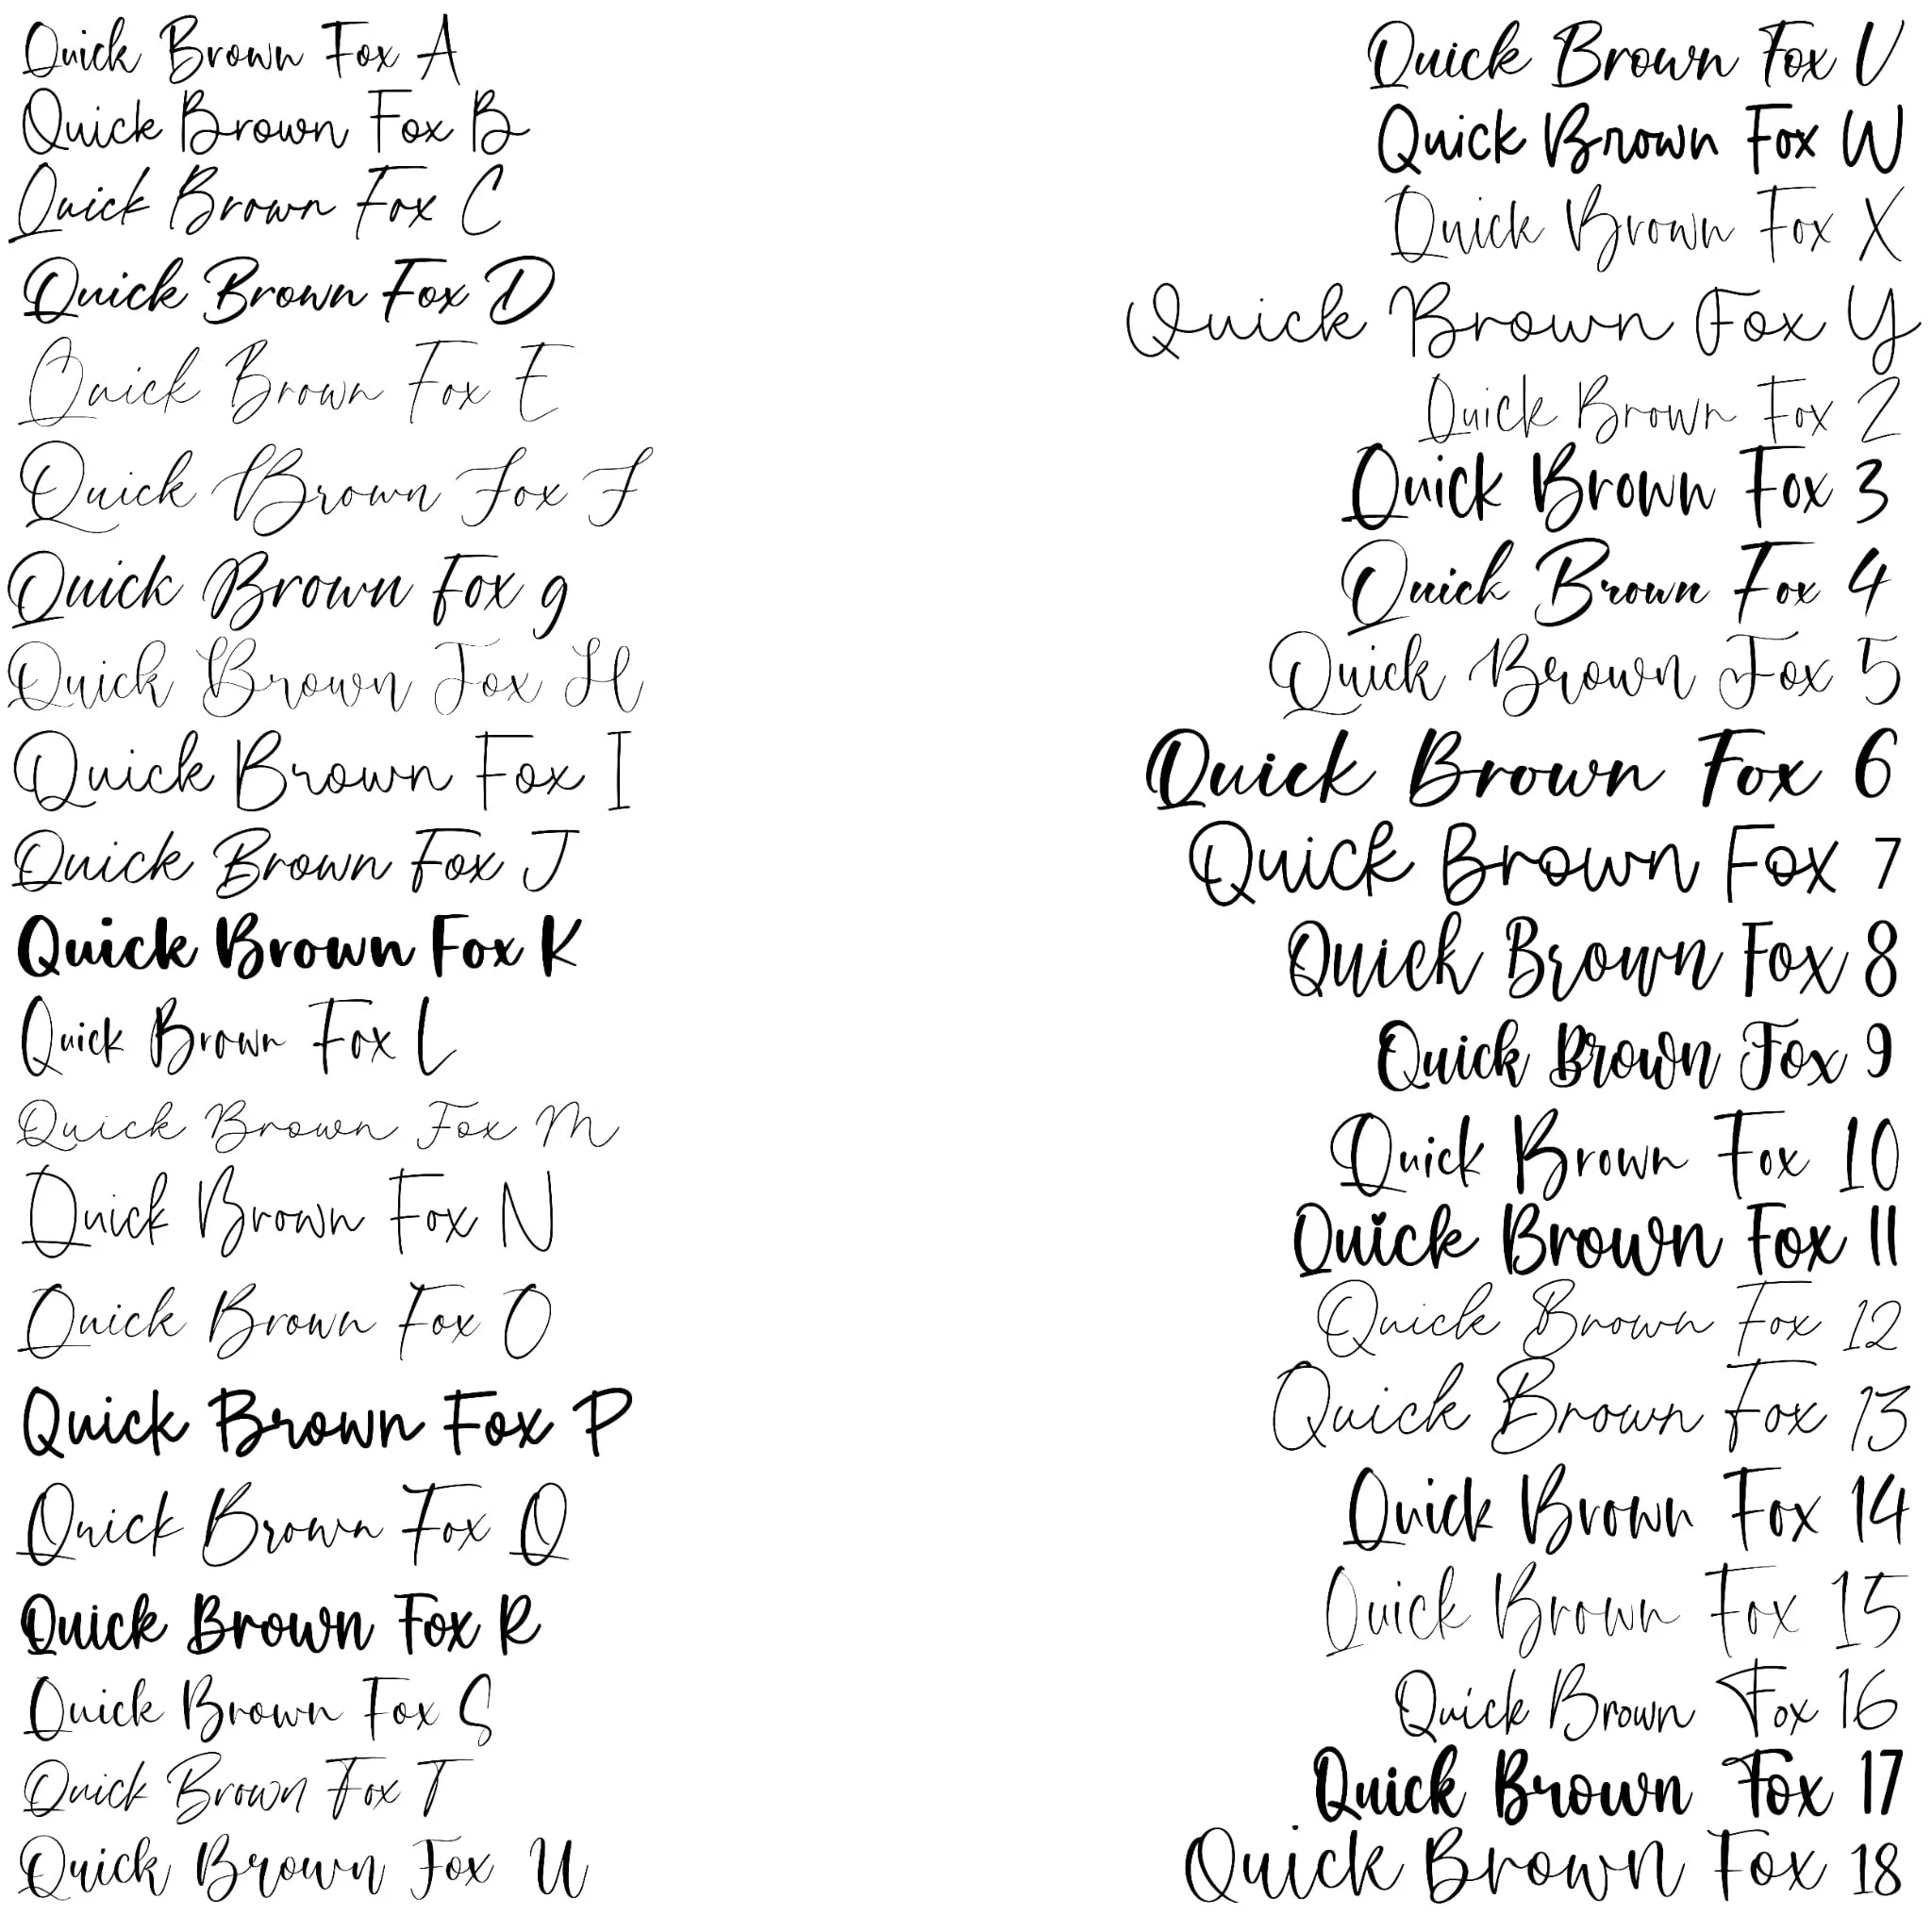 Quick Brown Fox A
Quick Brown Fox B
Quick Brown Fox C
Quick Brown Fox D
Quick Brown Fox E
Quick Brown Fox F
Quick Brown Fox g
Quick Brown Fox H
Quick Brown Fox I
Quick Brown Fox J
Quick Brown Fox K
Quick Brown Fox L
Quick Brown Fox M
Quick Brown Fox N
Quick Brown Fox O
Quick Brown Fox P
Quick Brown Fox Q
Quick Brown Fox R
Quick Brown Fox S
Quick Brown Fox T
Quick Brown Fox U
Quick Brown Fox V
Quick Brown Fox W
Quick Brown Fox X
Quick Brown Fox Y
Quick Brown Fox 2
Quick Brown Fox 3
Quick Brown Fox 4
Quick Brown Fox 5
Quick Brown Fox 6
Quick Brown Fox 7
Quick Brown Fox 8
Quick Brown Fox 9
Quick Brown Fox 10
Quick Brown Fox 11
Quick Brown Fox 12
Quick Brown Fox 13
Quick Brown Fox 14
Quick Brown Fox 15
Quick Brown Fox 16
Quick Brown Fox 17
Quick Brown Fox 18